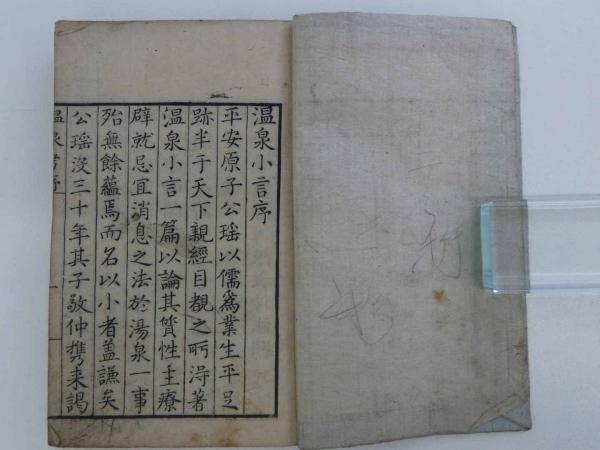 温泉小言序
平安原子公瑶以儒為業生平足
跡半于天下親經目覩之所淂著
温泉小言一篇以論其質性主療
辟就忌宜消息之法於湯泉一事
殆無餘蘊焉而名以小者盖謙矣
公瑶沒三十年其子敬仲携来謁
温泉